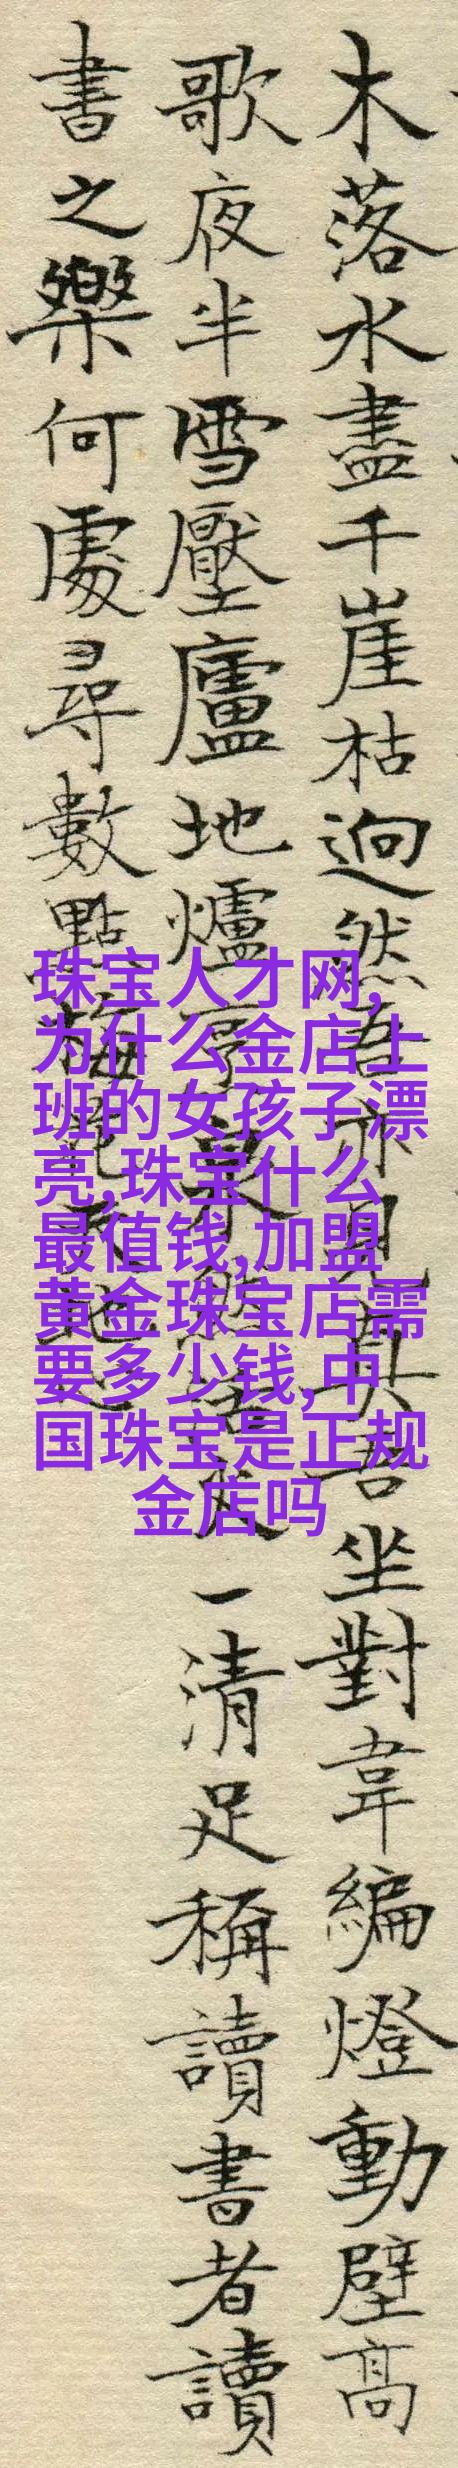 木落水盡千崖枯迥然吾亦見真吾坐對韋編燈動壁高
歌夜半雪壓廬地爐亨泉活火一清足稱讀書者讀
書之樂何處尋數點梅花天地心
珠宝人才网,
为什么金店上
班的女孩子漂
亮,珠宝什么
最值钱,加盟
黄金珠宝店需
要多少钱,中
国珠宝是正规
金店吗